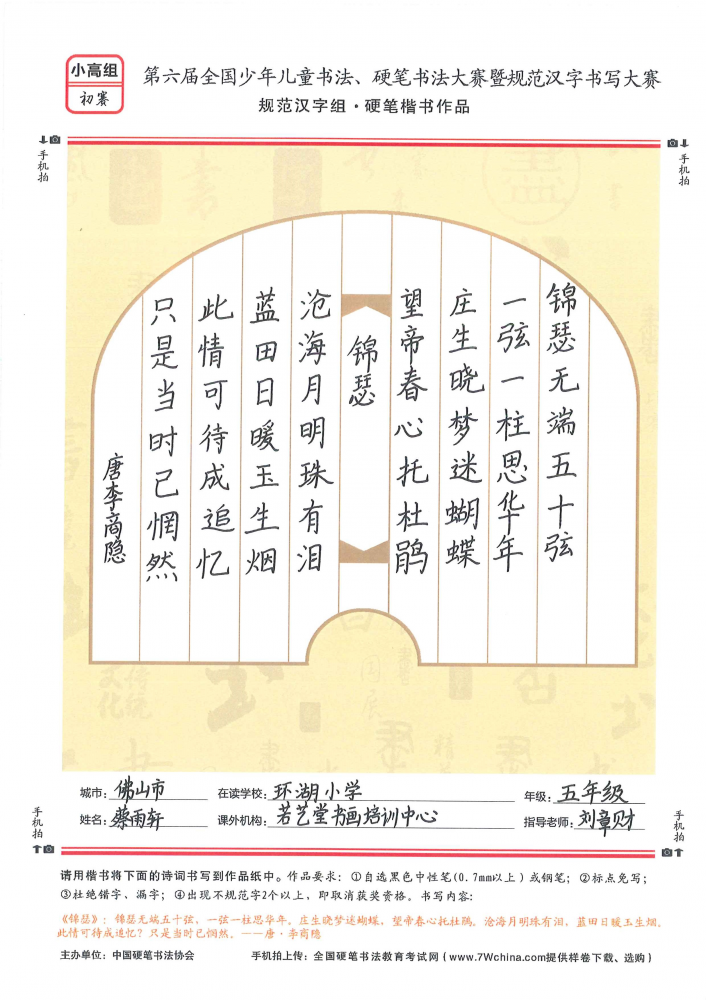 小高组
初赛
第六届全国少年儿童书法、硬笔书法大赛暨规范汉字书写大赛
规范汉字组·硬笔楷书作品
手机拍
手机拍
锦瑟无端五十弦
一弦一柱思华年
庄生晓梦迷蝴蝶
望帝春心托杜鹃
锦瑟
沧海月明珠有泪
蓝田日暖玉生烟
此情可待成追忆
只是当时已惘然
唐李商隐
城市：佛山市 在读学校：环湖小学 年级：五年级
姓名：蔡雨轩 课外机构：若艺堂书画培训中心 指导老师：刘章财
手机拍
手机拍
请用楷书将下面的诗词书写到作品纸中。作品要求：①自选黑色中性笔(0.7mm以上)或钢笔；②标点免写；
③杜绝错字、漏字；④出现不规范字2个以上，即取消获奖资格。书写内容：
《锦瑟》：锦瑟无端五十弦，一弦一柱思华年。庄生晓梦迷蝴蝶，望帝春心托杜鹃。沧海月明珠有泪，蓝田日暖玉生烟。
此情可待成追忆？只是当时已惘然。——唐·李商隐
主办单位：中国硬笔书法协会 手机拍上传：全国硬笔书法教育考试网（www.7Wchina.com提供样卷下载、选购）